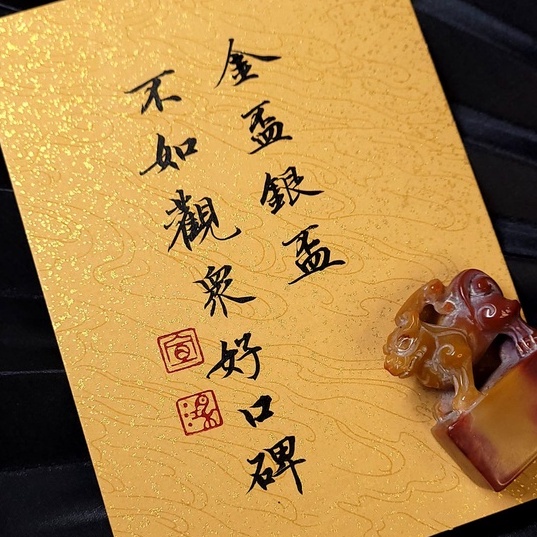 金盃銀盃
不如觀眾好口碑
宣